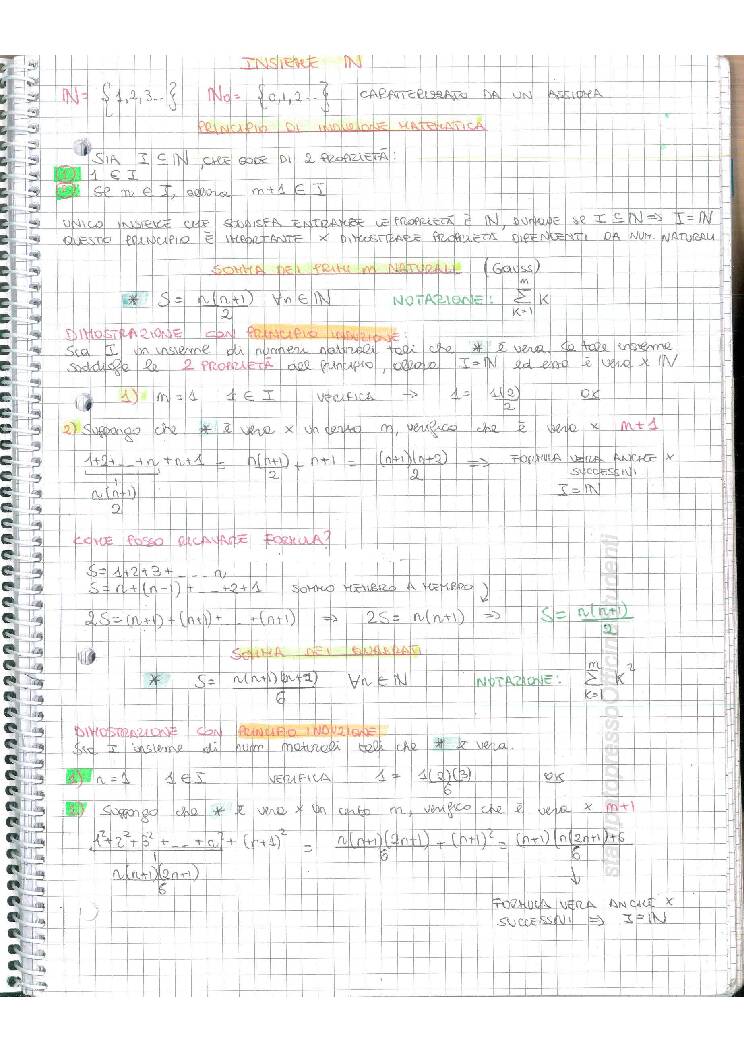 INSIEME IN
IN = {1,2,3...} INo = {0,1,2...} CARATTERIZZATO DA UN ASSIOMA
PRINCIPIO DI INDUZIONE MATEMATICA
SIA I ⊆ IN, CHE GODE DI 2 PROPRIETÀ:
1) 1 ∈ I
2) Se n ∈ I, allora n+1 ∈ I
UNICO INSIEME CHE SODDISFA ENTRAMBE LE PROPRIETÀ È IN, DUNQUE SE I ⊆ IN ⇒ I = IN
QUESTO PRINCIPIO È IMPORTANTE x DIMOSTRARE PROPRIETÀ DIPENDENTI DA NUM. NATURALI
SOMMA DEI PRIMI n NATURALI (Gauss)
* S = n(n+1)/2 ∀n ∈ IN NOTAZIONE: ∑_{K=1}^{n} K
DIMOSTRAZIONE CON PRINCIPIO INDUZIONE:
Sia I un insieme di numeri naturali tali che * è vera. Se tale insieme
soddisfa le 2 PROPRIETÀ del principio, allora I = IN ed essa è vera x IN
1) n = 1 1 ∈ I VERIFICA → 1 = 1(2)/2 OK
2) Suppongo che * è vera x un certo n, verifico che è vera x n+1
1+2+...+n + n+1 = n(n+1)/2 + n+1 = (n+1)(n+2)/2 ⇒ FORMULA VERA ANCHE x
n(n+1)/2 SUCCESSIVI
I = IN
COME POSSO RICAVARE FORMULA?
S = 1+2+3+ ... n
S = n+(n-1)+ ... +2+1 SOMMO MEMBRO A MEMBRO
2S = (n+1)+(n+1)+ ... +(n+1) ⇒ 2S = n(n+1) ⇒ S = n(n+1)/2
SOMMA DEI QUADRATI
* S = n(n+1)(n+2)/6 ∀n ∈ IN NOTAZIONE: ∑_{K=1}^{n} K²
DIMOSTRAZIONE CON PRINCIPIO INDUZIONE
Sia I insieme di num naturali tali che * è vera.
1) n = 1 1 ∈ I VERIFICA 1 = 1(2)(3)/6 OK
2) Suppongo che * è vera x un certo n, verifico che è vera x n+1
1²+2²+3²+ ... +n² + (n+1)² = n(n+1)(2n+1)/6 + (n+1)² = (n+1)(n(2n+1)+6/6
n(n+1)(2n+1)/6
FORMULA VERA ANCHE x
SUCCESSIVI ⇒ I = IN